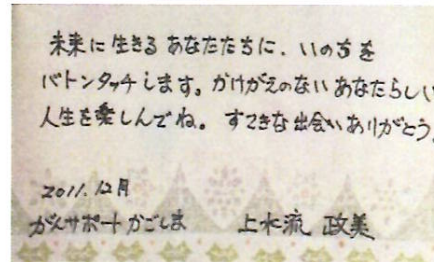 未来に生きるあなたたちに、いのちを
バトンタッチします。かけがえのないあなたらしい
人生を楽しんでね。すてきな出会いありがとう。
2011.12月
がんサポートかごしま 上水流 政美